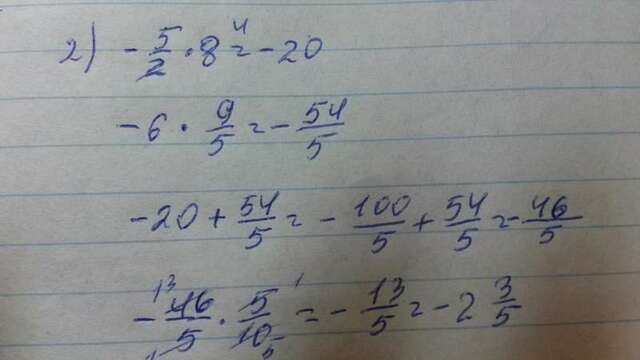 2) - 5/2 · 8 4 = -20
-6 · 9/5 = - 54/5
-20 + 54/5 = - 100/5 + 54/5 = - 46/5
- 46/5 13 1 · 5/10 1 5 = - 13/5 = -2 3/5